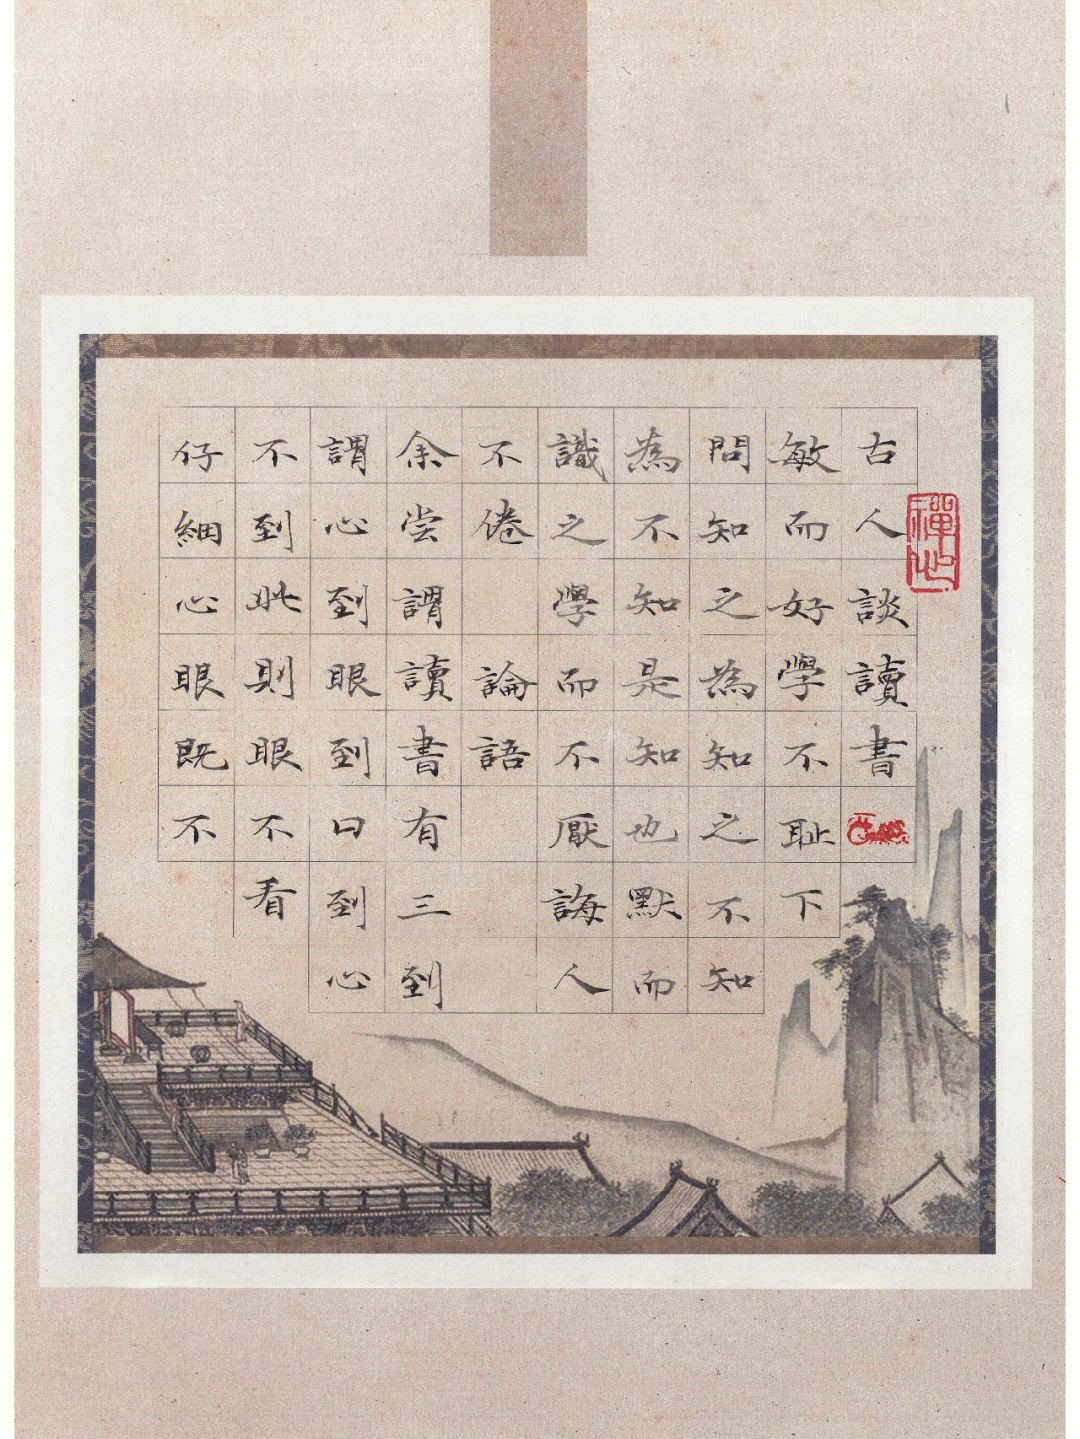 禪心
古人談讀書
敏而好學不耻下
問知之為知之不知
為不知是知也默而
識之學而不厭誨人
不倦 論語
余尝謂讀書有三到
謂心到眼到曰到心
不到此則眼不看
仔細心眼既不